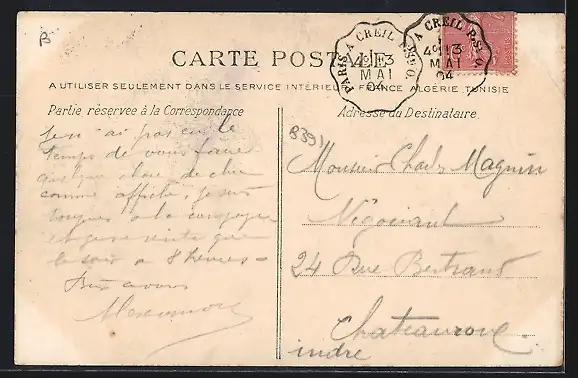 B
CARTE POSTALE
PARIS A CREIL P.ST O.
4E 13
MAI
04
A CREIL P.ST O.
4E 13
MAI
04
A UTILISER SEULEMENT DANS LE SERVICE INTÉRIEUR FRANCE ALGÉRIE TUNISIE
Partie réservée à la Correspondance
Adresse du Destinataire
B391
Je n'ai pas eu le
temps de vous faire
quelque chose de
comme je suis
toujours à la campagne
et que
le soir à 8 heures =
à vous
Monsieur Charles Magnin
Négociant
24 Rue Bertrand
Chateauroux
indre